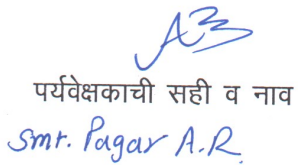 पर्यवेक्षकाची सही व नाव
Smt. Pagar A.R.